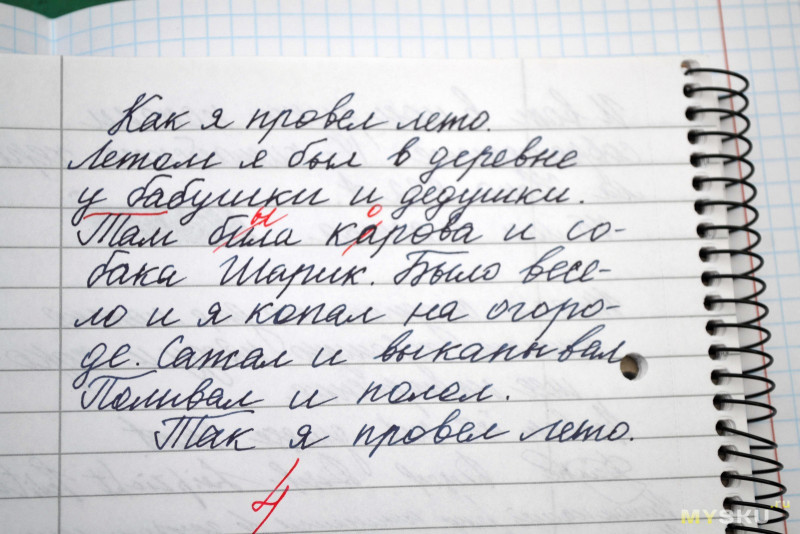 Как я провел лето.
Летом я был в деревне
у бабушки и дедушки.
ы о
Там била карова и со-
бака Шарик. Было весе-
ло и я копал на огоро-
де. Сажал и выкапывал
Поливал и полол.
Так я провел лето.
4
MYSKU.ru